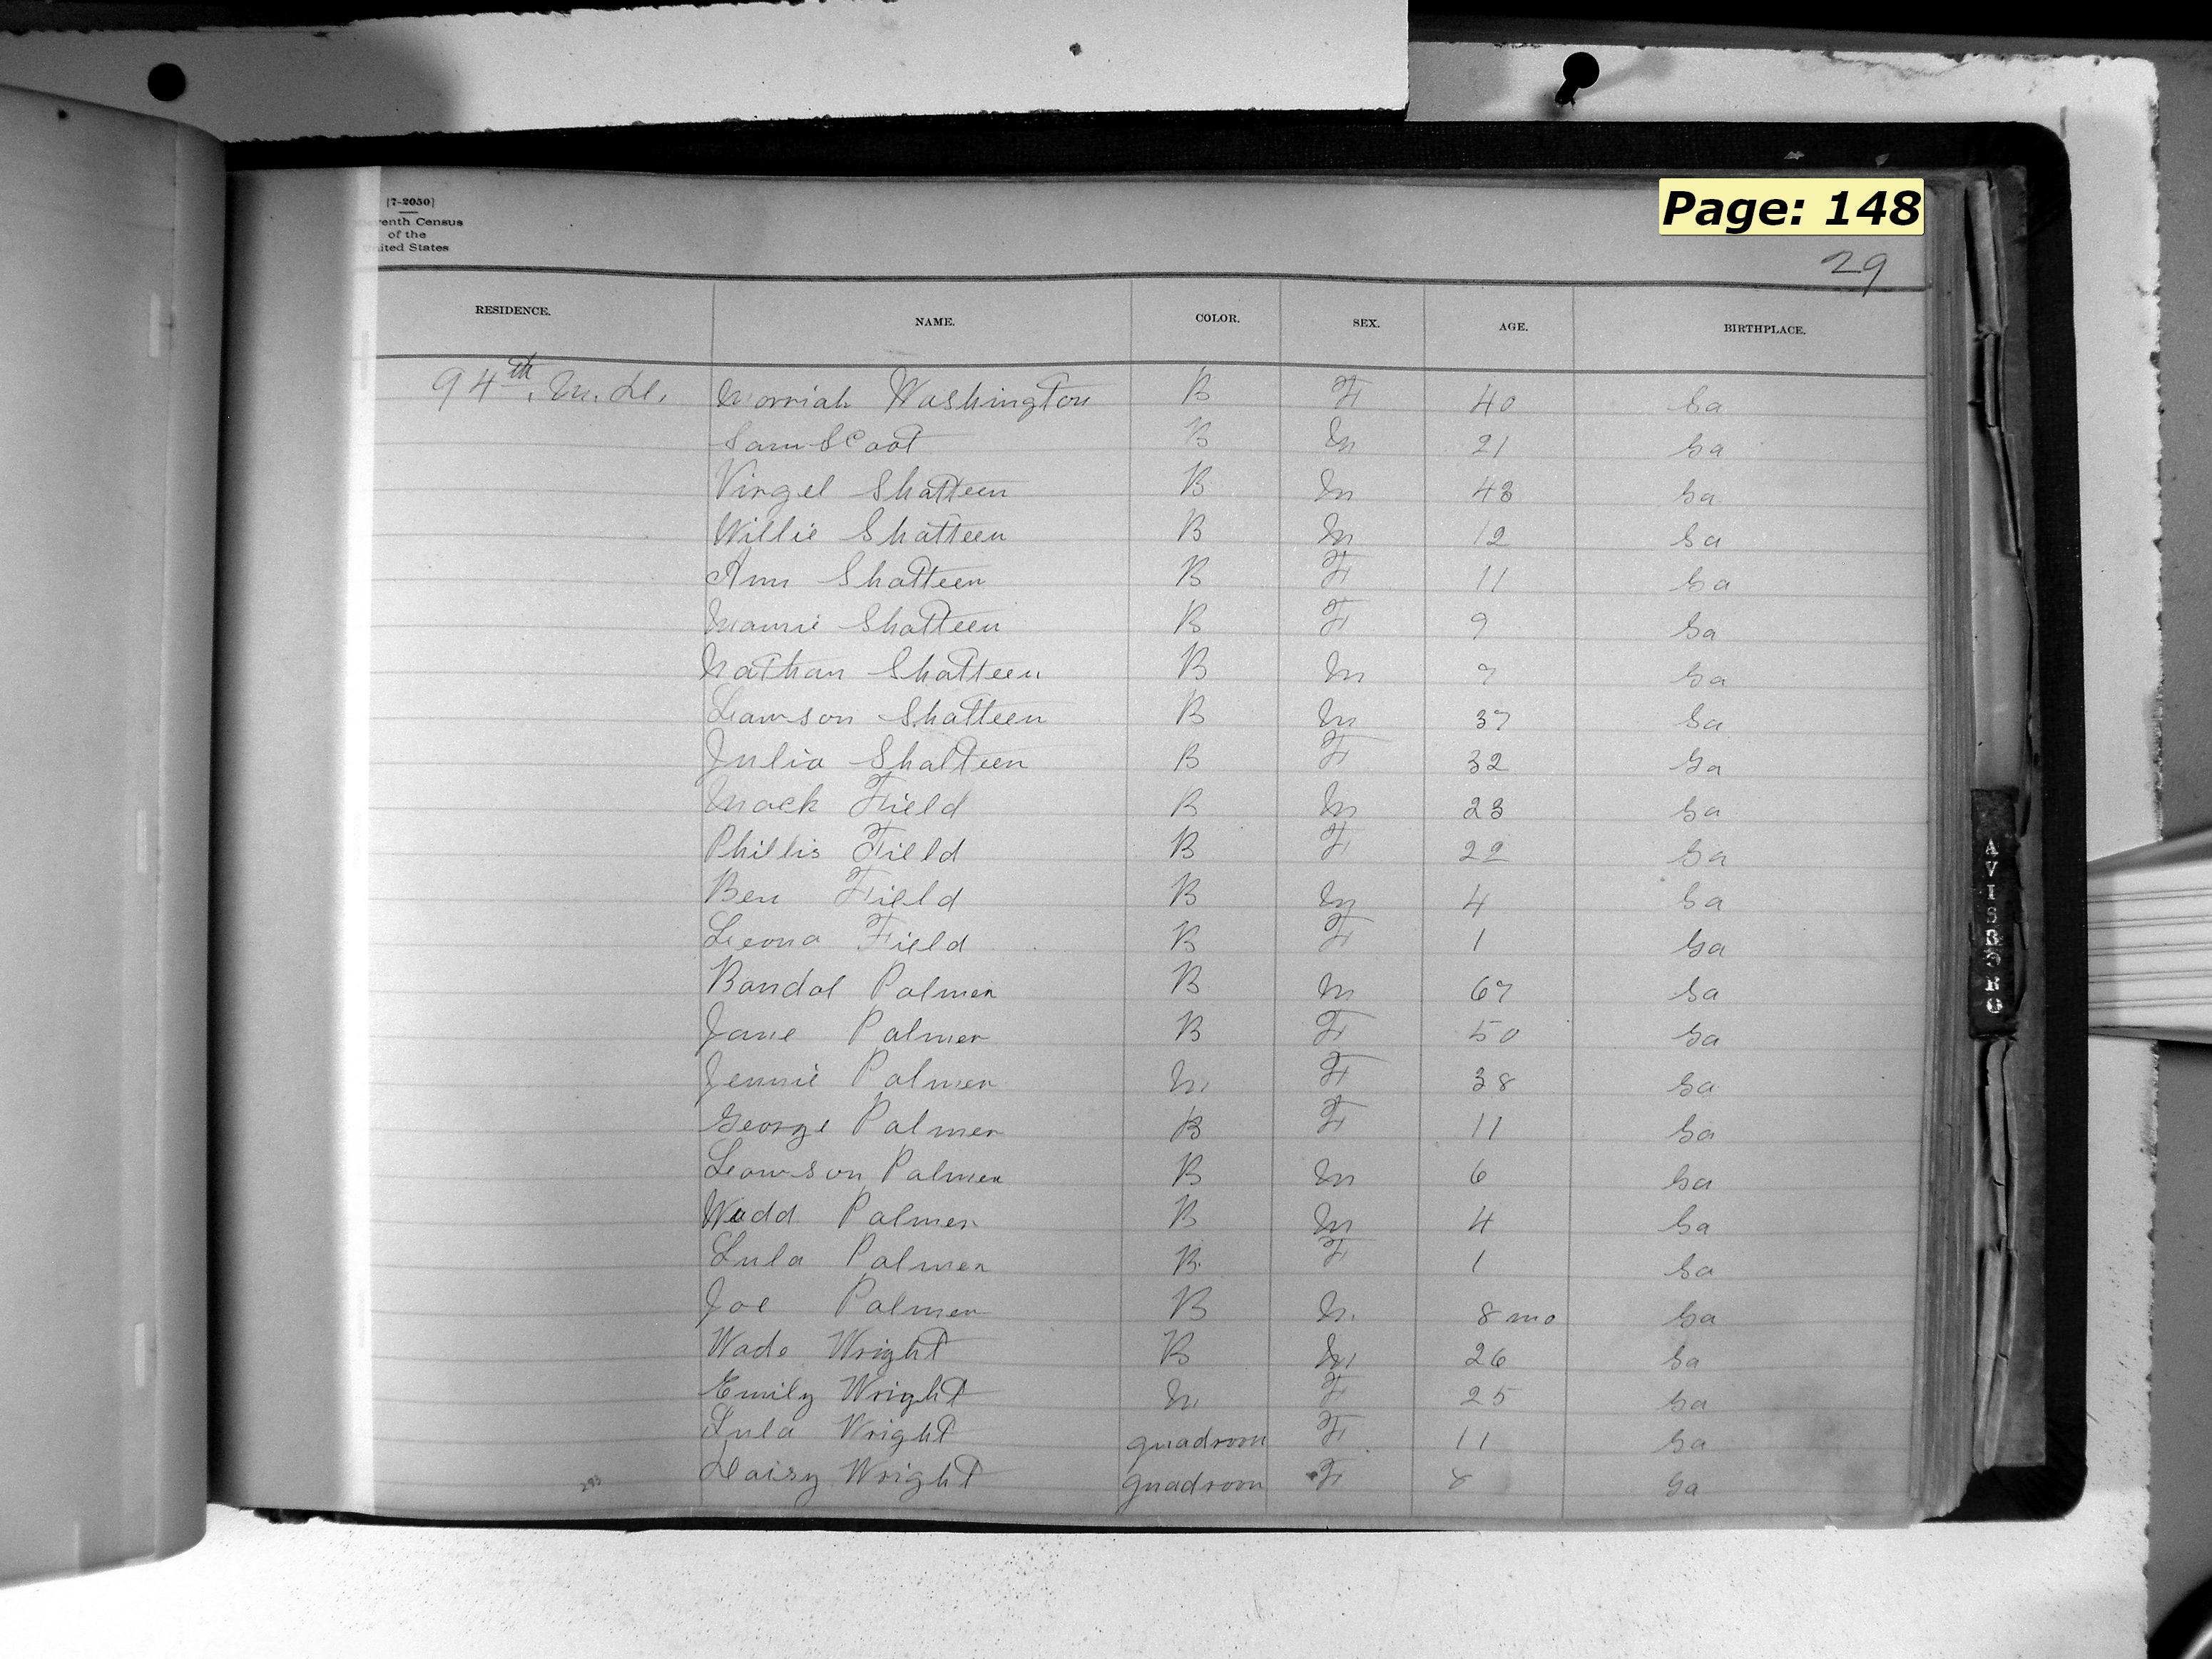 Page: 148
[7-2050]
venth Census
of the
nited States
29
RESIDENCE. NAME. COLOR. SEX. AGE. BIRTHPLACE.
94th. M. Morriah Washington B F 40 Ga
Sam Scoot B M 21 Ga
Virgel Shatteen B M 43 Ga
Willie Shatteen B M 12 Ga
Ann Shatteen B F 11 Ga
Mamie Shatteen B F 9 Ga
Nathan Shatteen B M 7 Ga
Lawson Shatteen B M 37 Ga
Julia Shatteen B F 32 Ga
Mack Field B M 23 Ga
Phillis Field B F 22 Ga
Ben Field B M 4 Ga
Leona Field B F 1 Ga
Randol Palmer B M 67 Ga
Jane Palmer B F 50 Ga
Jennie Palmer M. F 38 Ga
George Palmer B F 11 Ga
Lawson Palmer B M 6 Ga
Wadd Palmer B M 4 Ga
Lula Palmer B. F 1 Ga
Joe Palmer B M. 8 mo Ga
Wade Wright B M 26 Ga
Emily Wright M. F 25 Ga
Lula Wright quadroon F 11 Ga
Daisy Wright quadroon F 8 Ga
293